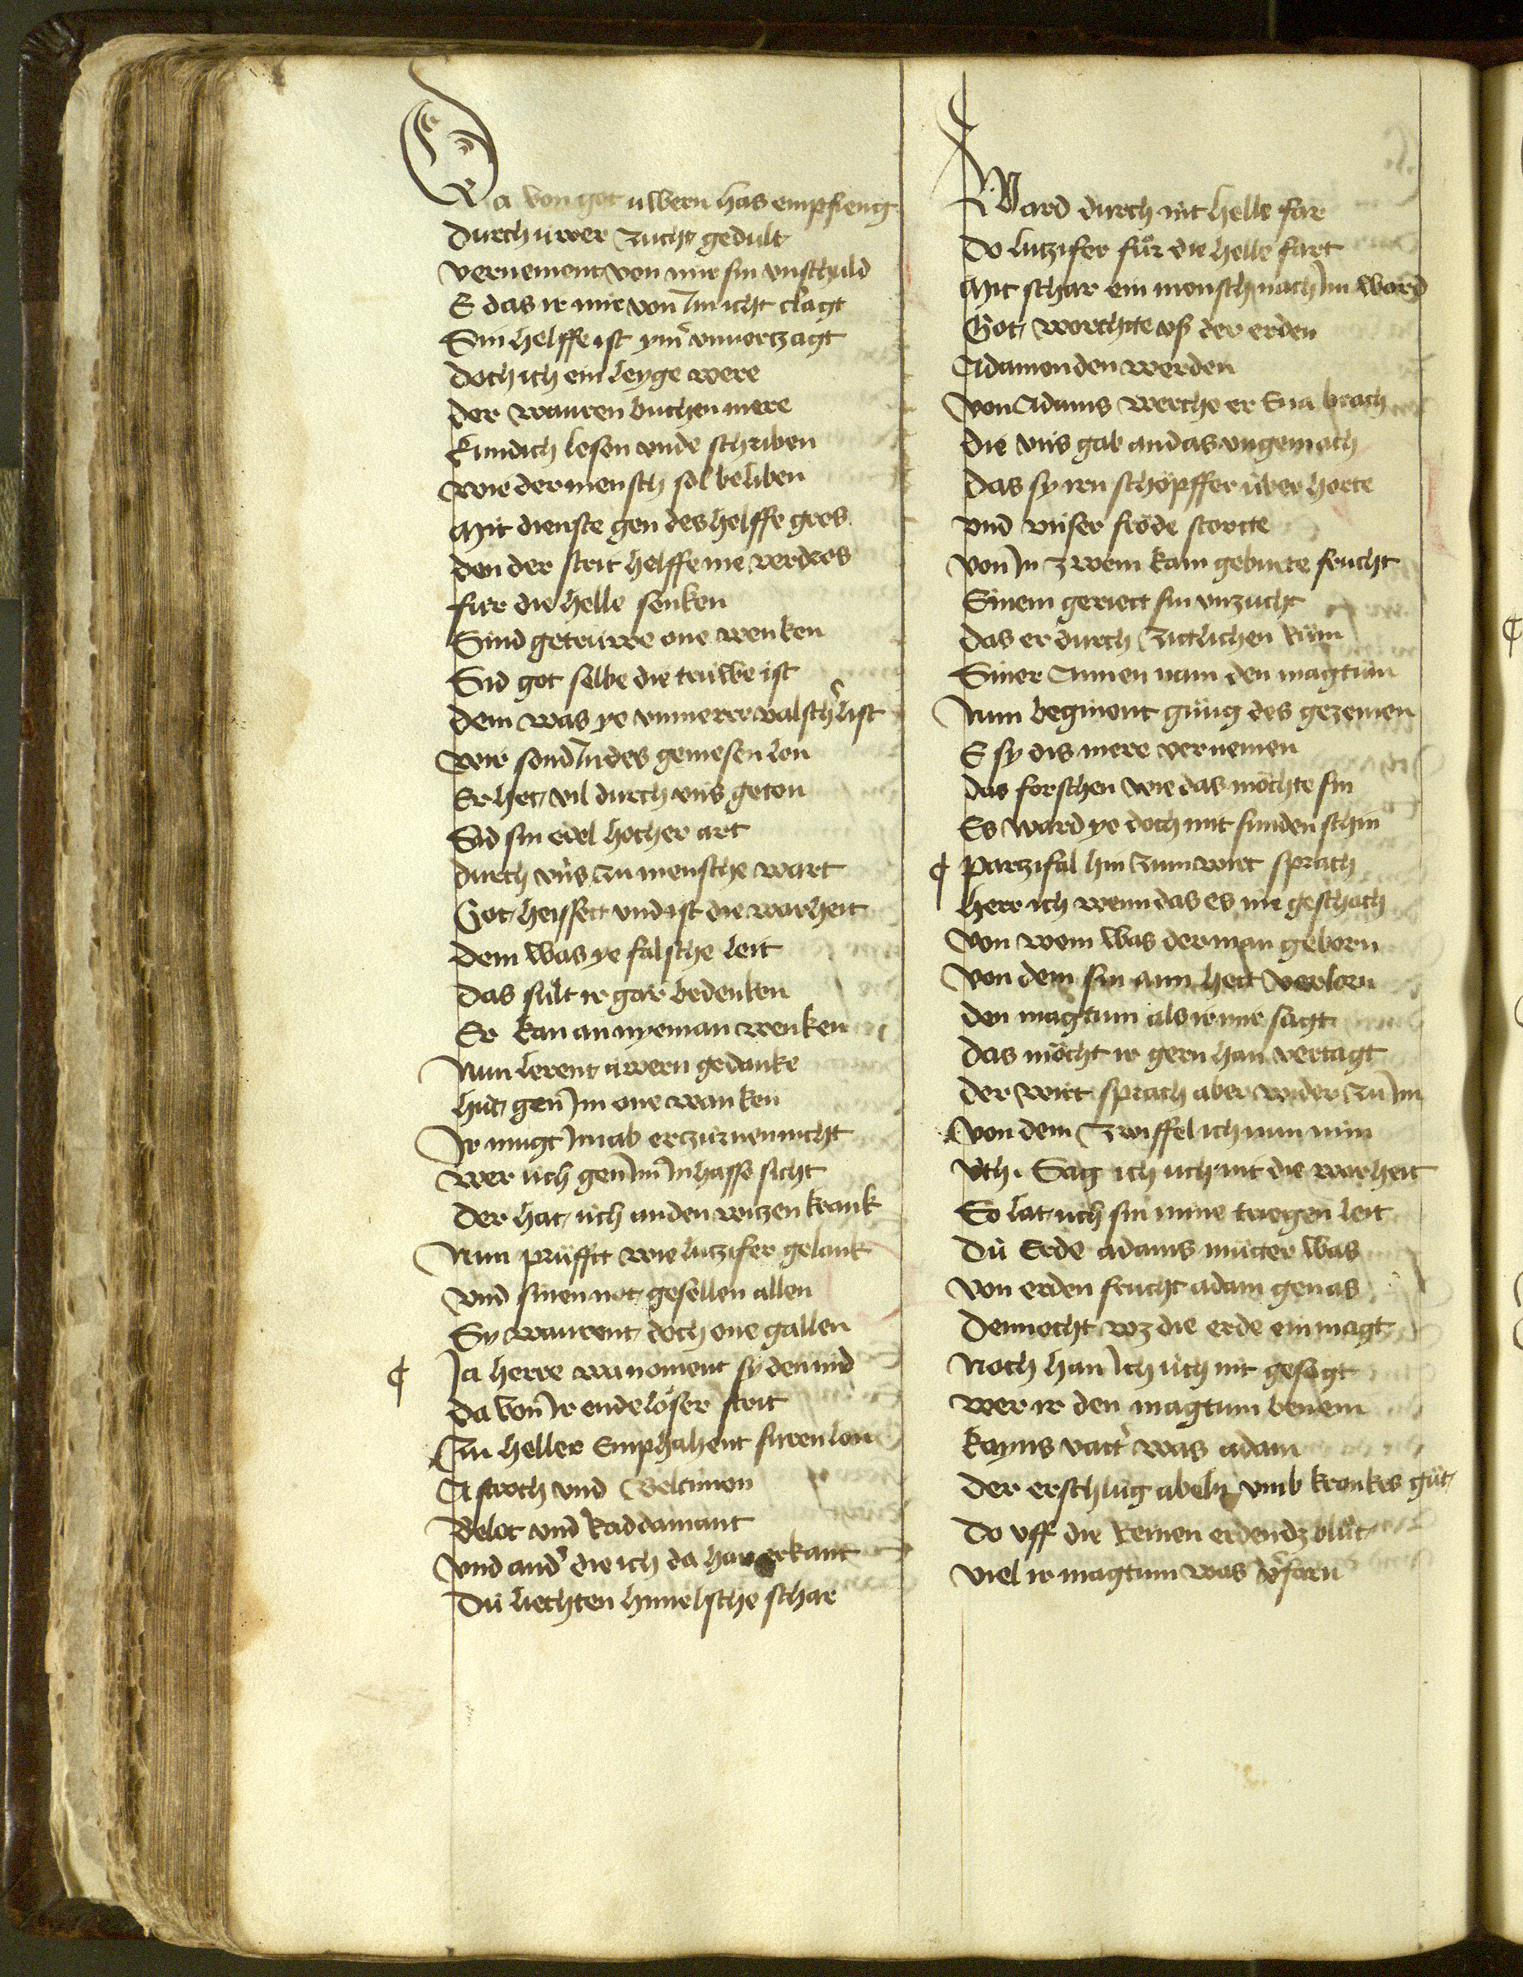 Da von got uwern has empfieng
Durch uwer zucht gedult
vernement von mir sin vnschuld
E das ir mir von Im icht clagt
Sin helffe ist ym̄ vnuerczagt
doch ich ein leyge were
der wauren buchen mere
Kund ich lesen vnde schriben
wie der mensch sol beliben
Mit dienste gen des helffe gros
den der strit helffe nie verdros
fur die helle senken
Sind getruwe one wenken
Sid got selbe die truwe ist
dem was ye vnmere valsch list
wir sond In des geniesen lon
Er het vil durch vns geton
Sid sin edel hocher art
durch vns zu mensche wart
Got heissett vnd ist die warheit
dem was ye falsche leit
das sult ir gar bedenken
Er kan an nyeman wenken
Nun lerent uwern gedanke
hut gen Im one wanken
Ir mugt Im ab erczurnen nicht
wer uch gen Im In hasse sicht
der hat uch an den witzen krank
Nun pruffet wie lutzifer gelank
vnd sinen not gesellen allen
Sy waurent doch one gallen
¶ Ja herre wa noment sy den nid
da von Ir endeloser strit
Zu heller Emphahent suren lon
Astroth vnd Belcimon
Belet vnd Raddamant
vnd and' die ich da han erkant
Du liechten himelsche schar
Ward durch nit helle far
Do lutzifer fur die helle fart
Mit schar ein mensch nach Im ward
Got worchte vß der erden
Adamen den werden
von Adams werche er Eua brach
die vns gab an das vngemach
das sy irn schöpffer über horte
vnd vnser fröde storte
von In zwein kam geburte frucht
Einem geriett sin vnzucht
das er durch zitlichen rům
Siner Annen nam den magtum
Nun beginent gnůg des gezemen
E sy dis mere vernemen
das forschen wie das möchte sin
Es ward ye doch mit sunden schin
¶ Parzifal hin zum wirt sprach
herr ich wenn das es ime geschach
von wem was der man geborn
von dem sin ann hett verlorn
den magtum als ir mir sagt
das möcht ir gern han vertagt
der wirt sprach aber wider zu Im
von dem zwiffel ich nun nim
vch. Sag ich uch nit die warheit
So lat uch sin mine triegen leit
Du Erde adams mutter was
von erden frucht adam genas
Dennocht wz die erde ein magt
Noch han Ich uch nit gesagt
wer ir den magtum benem
kayns vatt' was adam
der erschlug abeln vmb krankes gut
do vff die Reinen erden dz blut
viel ir magtum was v'farn